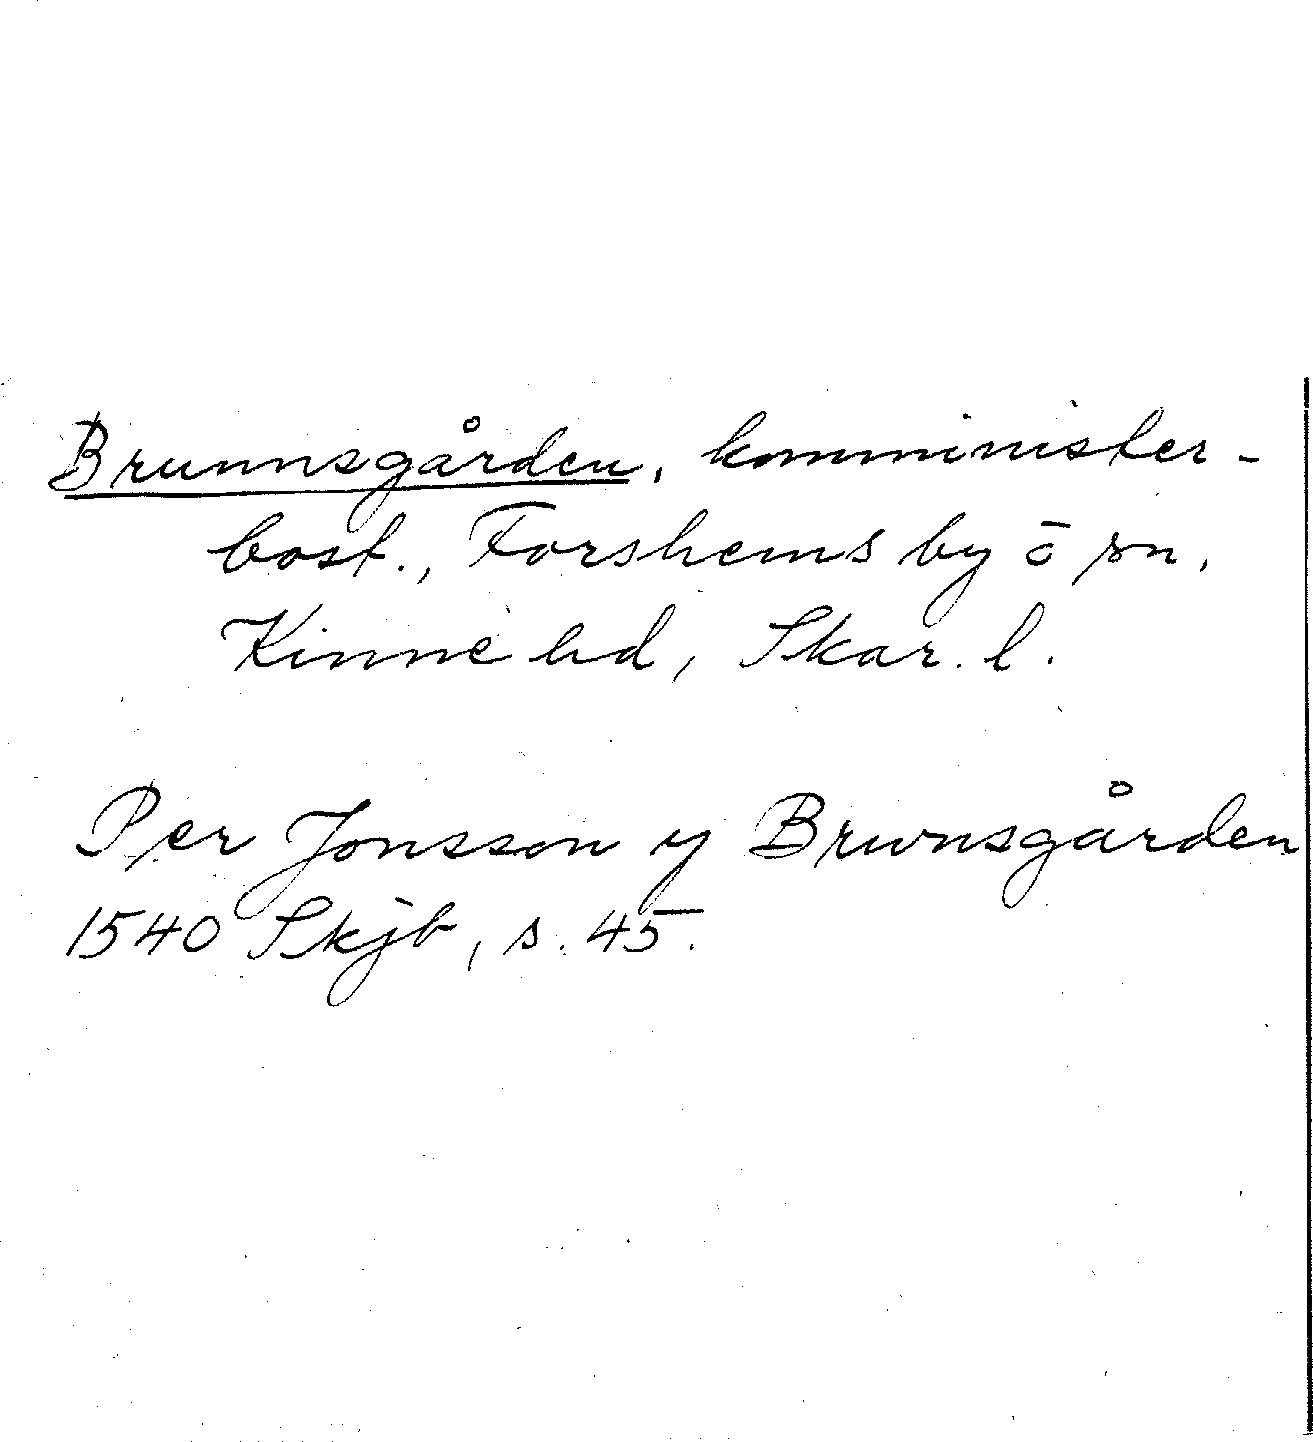 Brunnsgården, komminister-
bost., Forshems by o sn,
Kinne hd, Skar. l.
Per Jonsson y Brunsgården
1540 Skjb, s. 45.